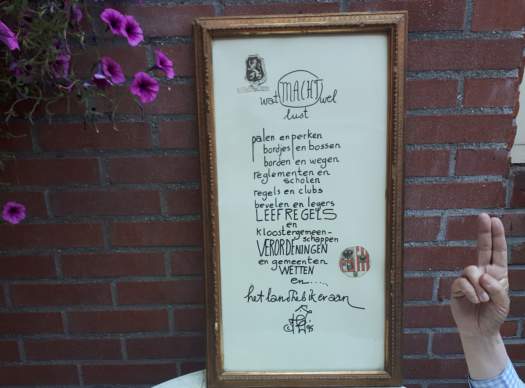 wat MACHT wel
lust
palen en perken
bordjes en bossen
borden en wegen
reglementen en
scholen
regels en clubs
bevelen en legers
LEEFREGELS
en
kloostergemeen-
schappen
VERORDENINGEN
en gemeenten
WETTEN
en.....
het land heb ik er aan